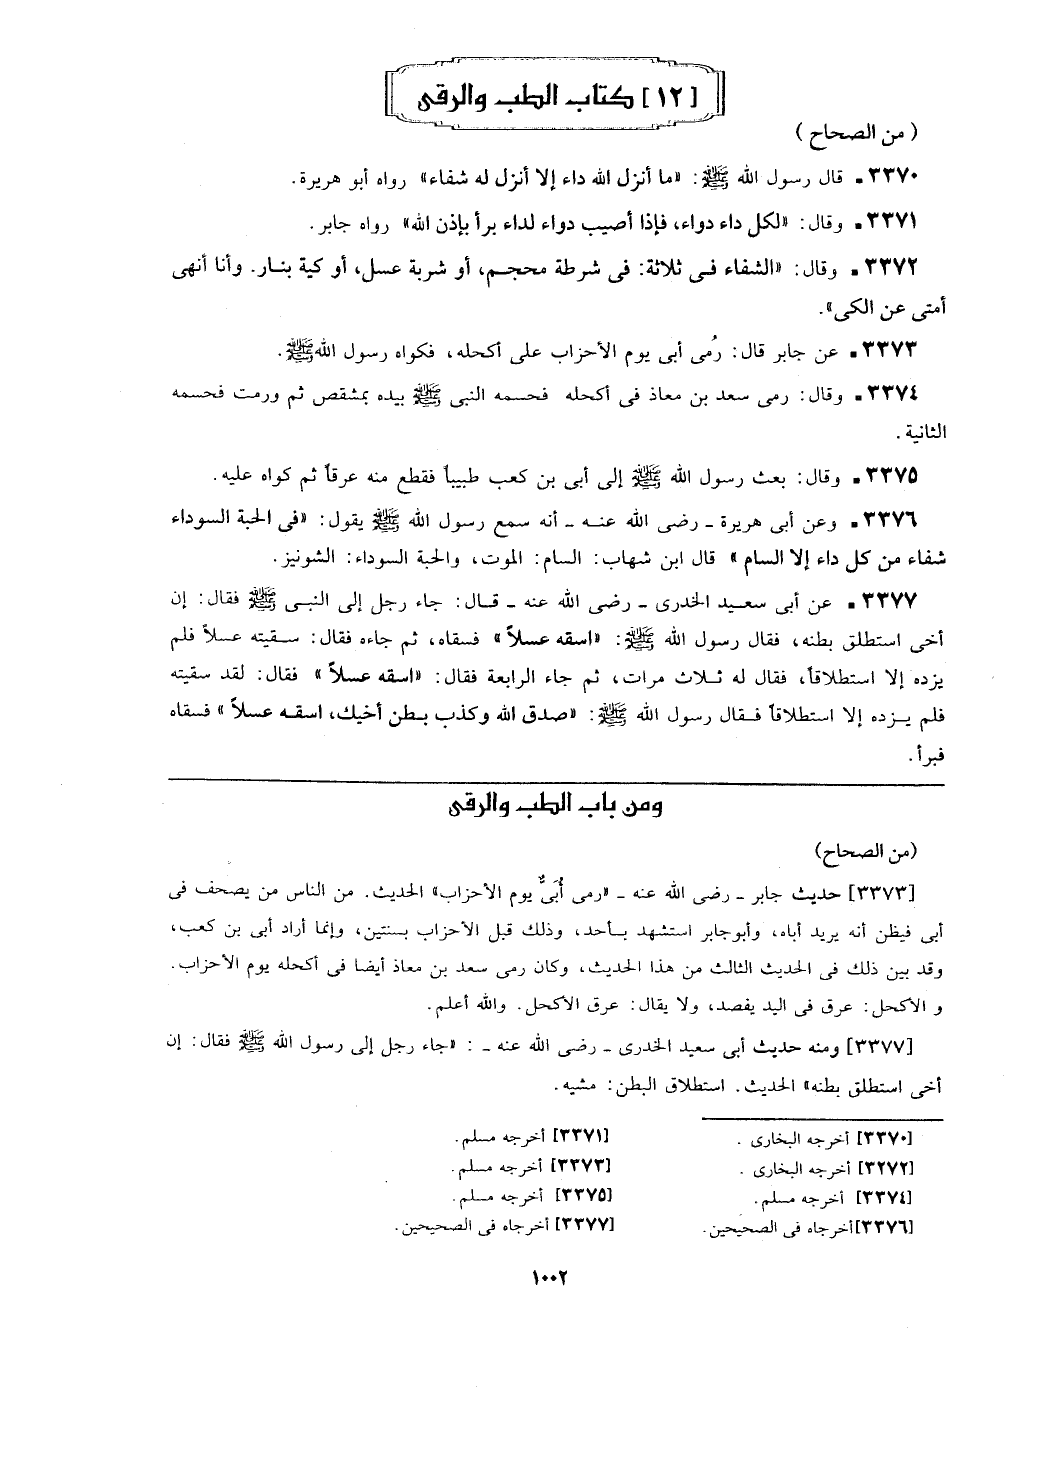 [١٢] كتاب الطب والرقى
( من الصحاح )
٣٣٧٠ـ قال رسول الله ﷺ: «ما أنزل الله داء إلا أنزل له شفاء» رواه أبو هريرة.
٣٣٧١ـ وقال: «لكل داء دواء، فإذا أصيب دواء لداء برأ بإذن الله» رواه جابر.
٣٣٧٢ـ وقال: «الشفاء فى ثلاثة: فى شرطة محجم، أو شربة عسل، أو كية بنار. وأنا أنهى
أمتى عن الكى».
٣٣٧٣ـ عن جابر قال: رُمى أبى يوم الأحزاب على أكحله، فكواه رسول الله ﷺ.
٣٣٧٤ـ وقال: رمى سعد بن معاذ فى أكحله فحسمه النبى ﷺ بيده بمشقص ثم ورمت فحسمه
الثانية.
٣٣٧٥ـ وقال: بعث رسول الله ﷺ إلى أبى بن كعب طبيباً فقطع منه عرقاً ثم كواه عليه.
٣٣٧٦ـ وعن أبى هريرة ـ رضى الله عنه ـ أنه سمع رسول الله ﷺ يقول: «فى الحبة السوداء
شفاء من كل داء إلا السام» قال ابن شهاب: السام: الموت، والحبة السوداء: الشونيز.
٣٣٧٧ـ عن أبى سعيد الخدرى ـ رضى الله عنه ـ قال: جاء رجل إلى النبى ﷺ فقال: إن
أخى استطلق بطنه، فقال رسول الله ﷺ: «اسقه عسلاً» فسقاه، ثم جاءه فقال: سقيته عسلاً فلم
يزده إلا استطلاقاً، فقال له ثلاث مرات، ثم جاء الرابعة فقال: «اسقه عسلاً» فقال: لقد سقيته
فلم يزده إلا استطلاقاً فقال رسول الله ﷺ: «صدق الله وكذب بطن أخيك، اسقه عسلاً» فسقاه
فبرأ.
ومن باب الطب والرقى
(من الصحاح)
[٣٣٧٣] حديث جابر ـ رضى الله عنه ـ «رمى أُبَىٌّ يوم الأحزاب» الحديث. من الناس من يصحف فى
أبى فيظن أنه يريد أباه، وأبوجابر استشهد بأحد، وذلك قبل الأحزاب بسنتين، وإنما أراد أبى بن كعب،
وقد بين ذلك فى الحديث الثالث من هذا الحديث، وكان رمى سعد بن معاذ أيضا فى أكحله يوم الأحزاب.
و الأكحل: عرق فى اليد يفصد، ولا يقال: عرق الأكحل. والله أعلم.
[٣٣٧٧] ومنه حديث أبى سعيد الخدرى ـ رضى الله عنه ـ : «جاء رجل إلى رسول الله ﷺ فقال: إن
أخى استطلق بطنه» الحديث. استطلاق البطن: مشيه.
[٣٣٧٠] أخرجه البخارى . [٣٣٧١] أخرجه مسلم.
[٣٢٧٢] أخرجه البخارى . [٣٣٧٣] أخرجه مسلم.
[٣٣٧٤] أخرجه مسلم. [٣٣٧٥] أخرجه مسلم.
[٣٣٧٦] أخرجاه فى الصحيحين. [٣٣٧٧] أخرجاه فى الصحيحين.
١٠٠٢